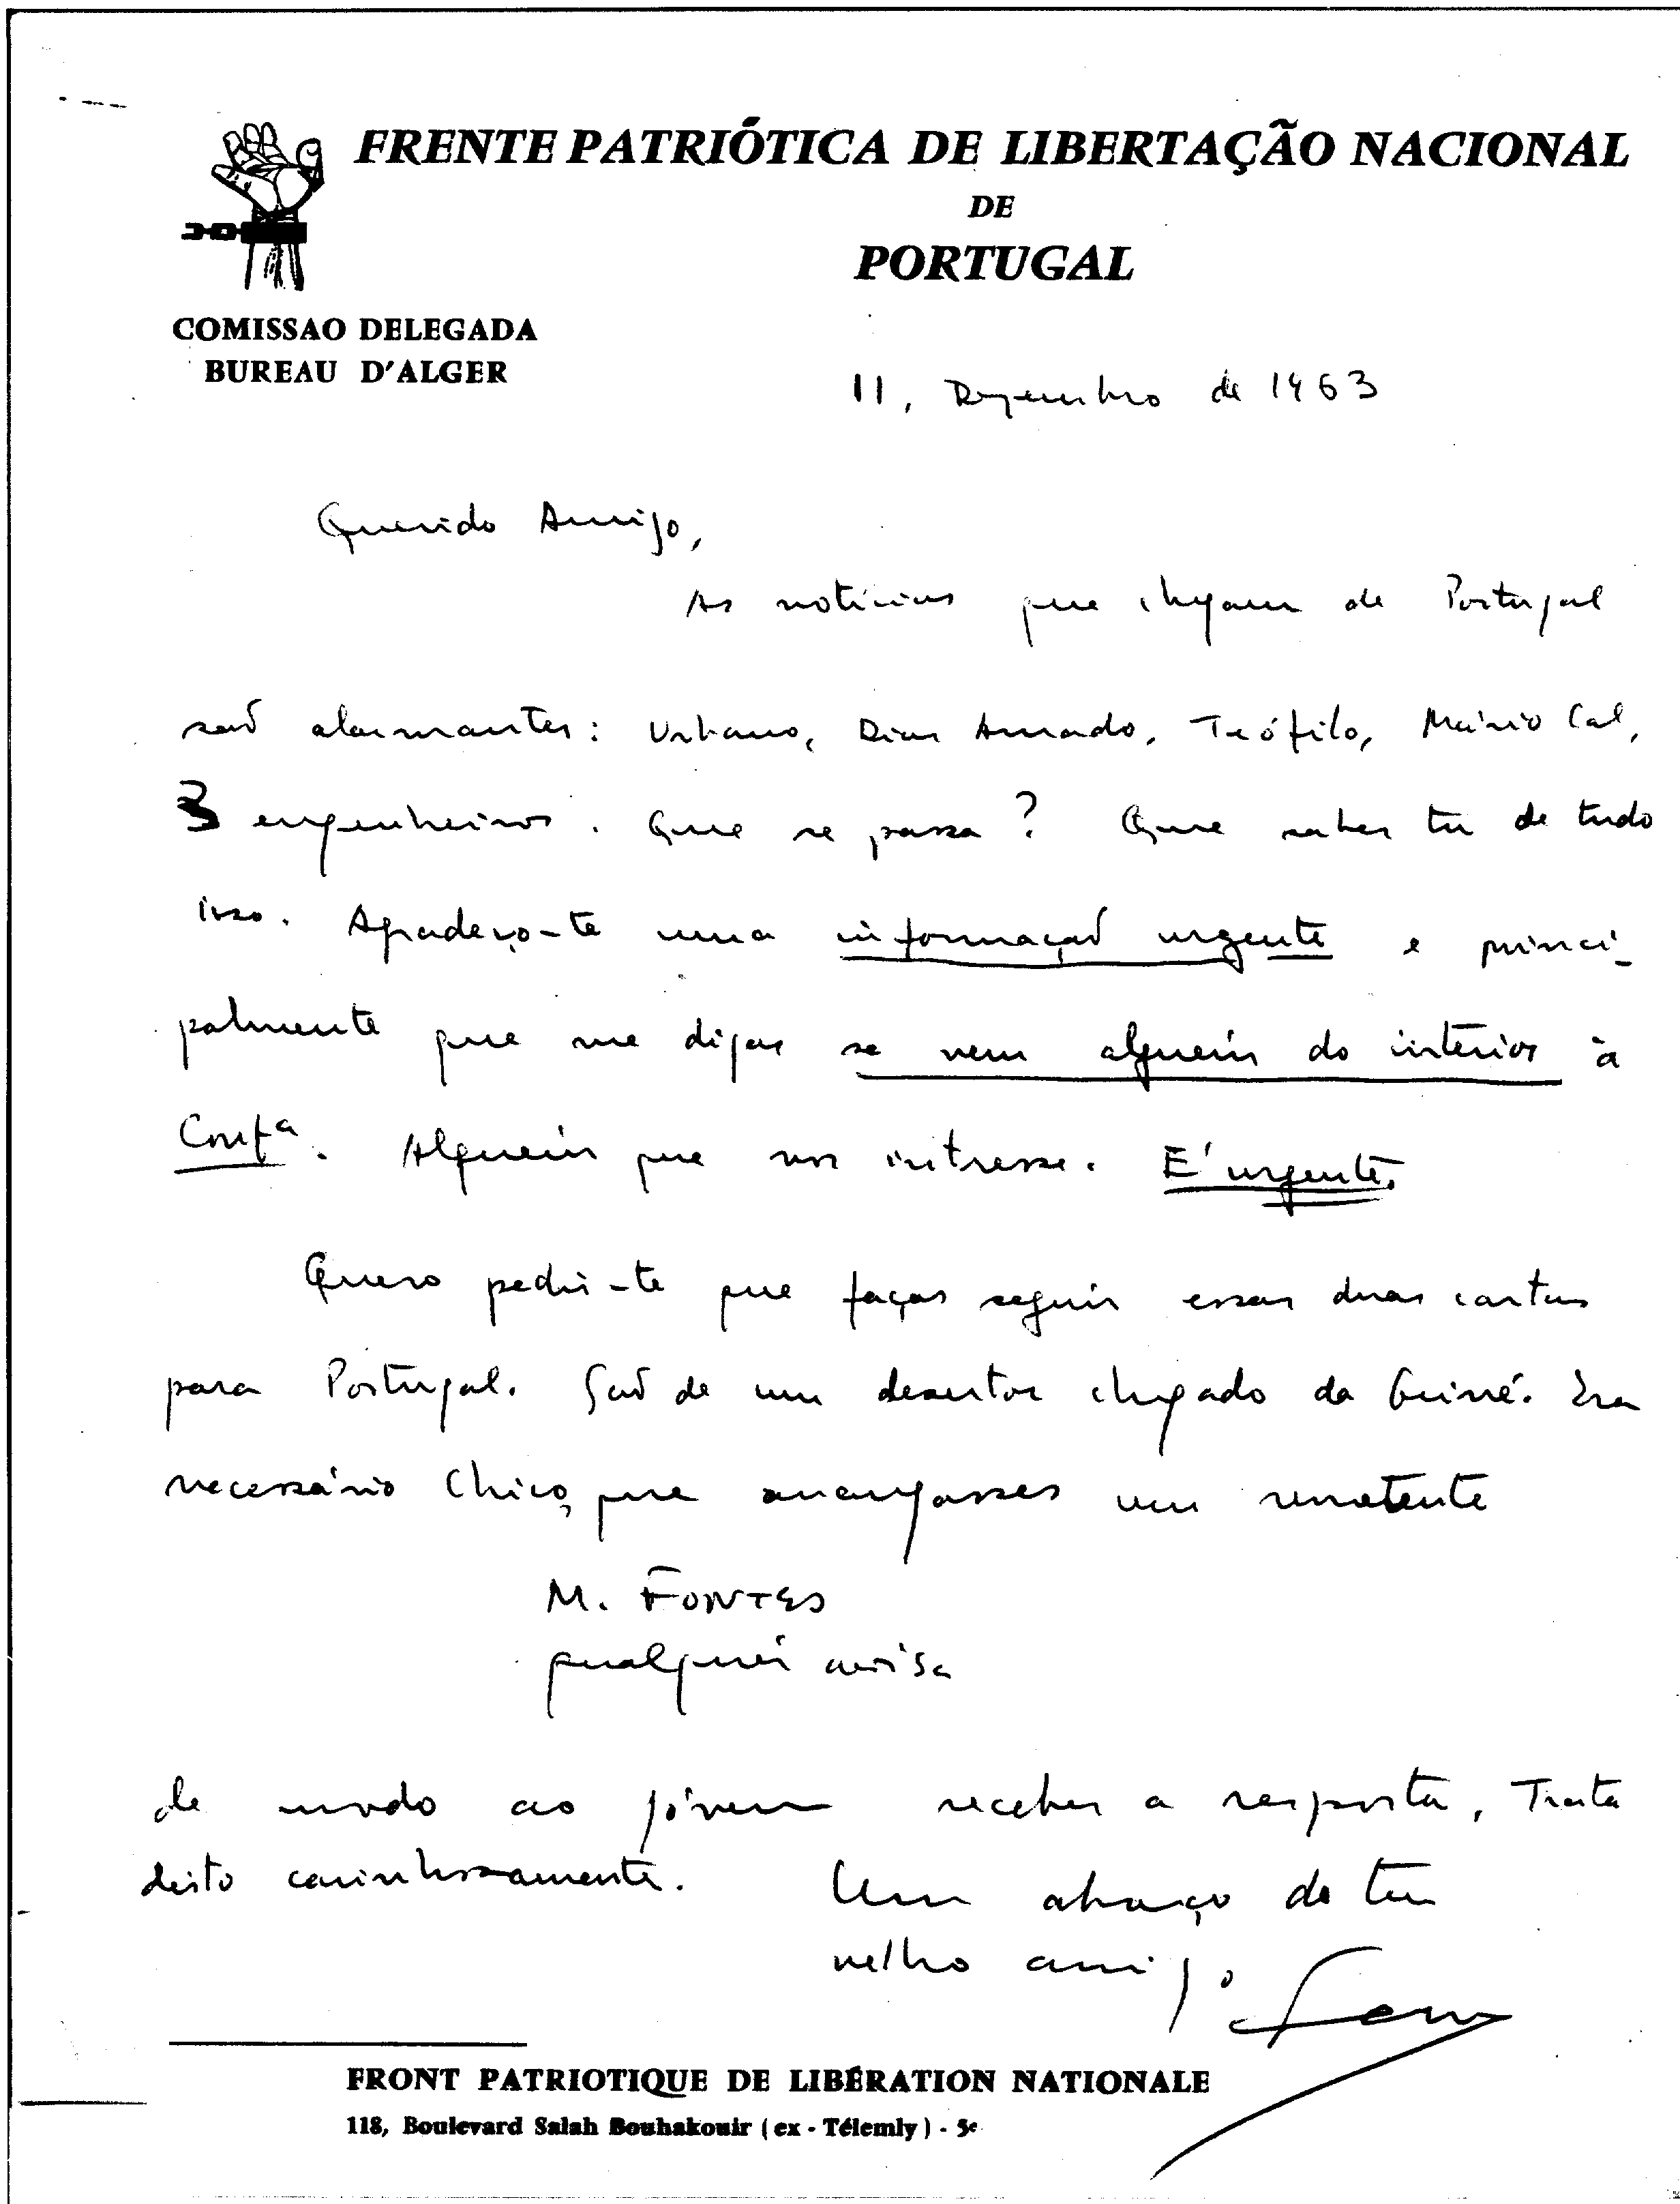 FRENTE PATRIÓTICA DE LIBERTAÇÃO NACIONAL
DE
PORTUGAL
COMISSAO DELEGADA
BUREAU D'ALGER
11, Dezembro de 1963
Querido Amigo,
As notícias que chegam de Portugal
saõ alarmantes: Urbano, Dias Amado, Teófilo, Mário Cal,
3 engenheiros. Que se passa? Que sabes tu de tudo
isso. Agradeço-te uma informaçaõ urgente e princi-
palmente que me digas se vem alguém do interior à
Confª. Alguém que nos intresse. E' urgente.
Quero pedir-te que faças seguir essas duas cartas
para Portugal. Saõ de um desertor chegado da Guiné. Era
necessário Chico, que arranjasses um remetente
M. FONTES
qualquer coisa
de modo ao jóvem receber a resposta, Trata
disto carinhosamente.
Um abraço do teu
velho amigo
FRONT PATRIOTIQUE DE LIBÉRATION NATIONALE
118, Boulevard Salah Bouhakouir (ex - Télemly) - 5e